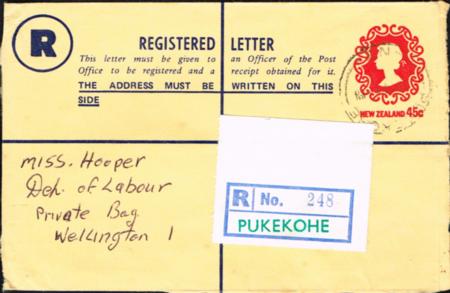 R
REGISTERED LETTER
This letter must be given to an Officer of the Post
Office to be registered and a receipt obtained for it.
THE ADDRESS MUST BE WRITTEN ON THIS
SIDE
NEW ZEALAND 45c
Miss. Hooper
Deh. of Labour
Private Bag
Wellington 1
R No. 248
PUKEKOHE